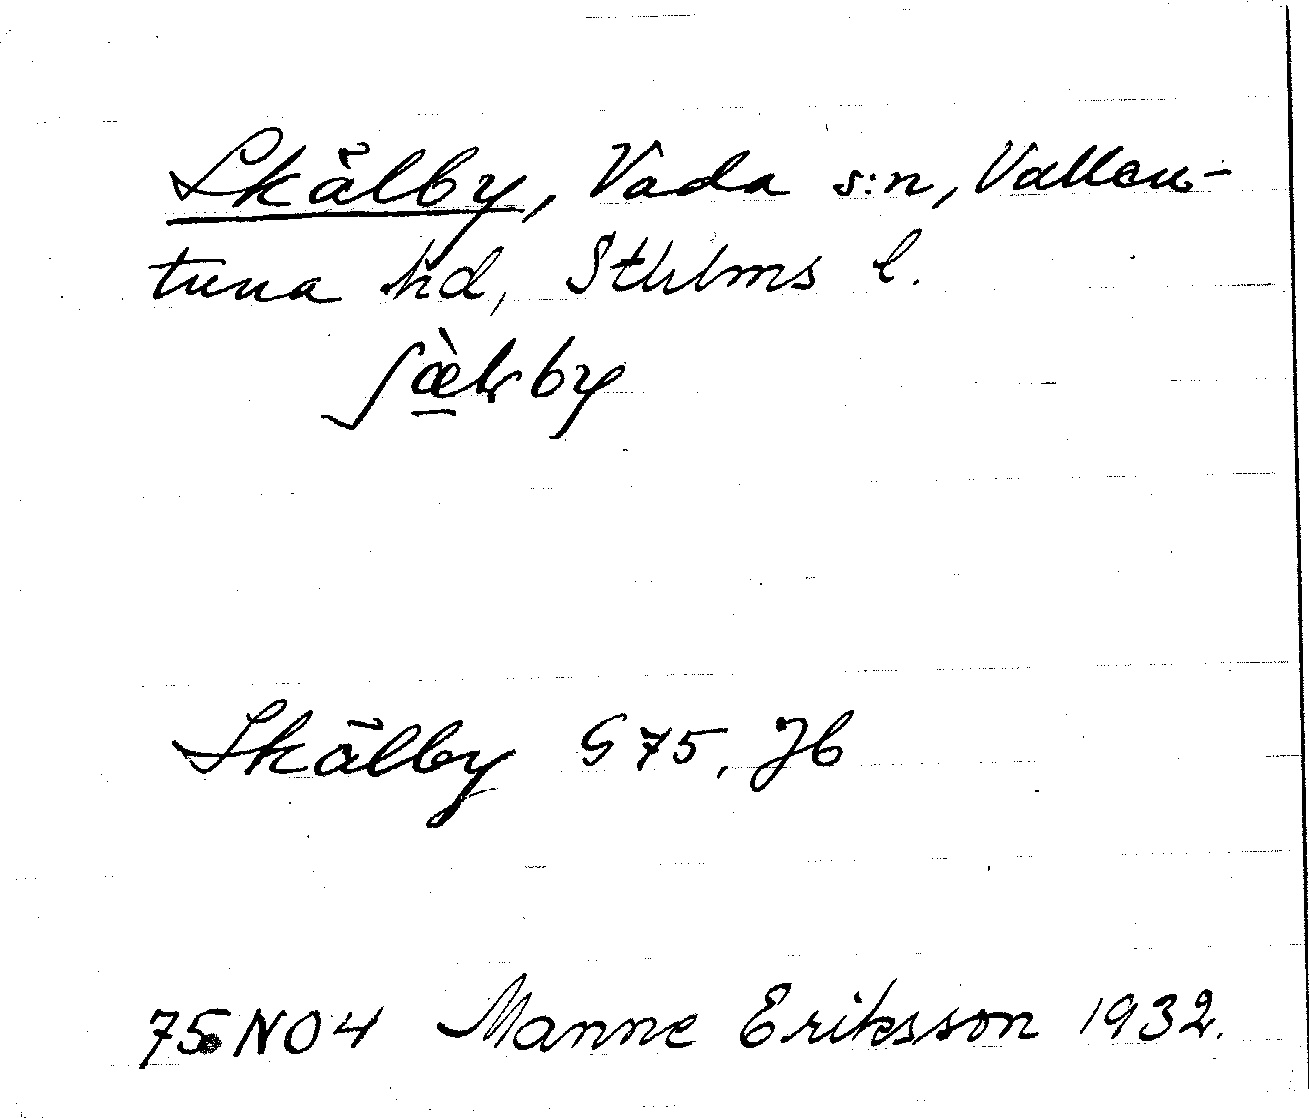 Skälby, Vada s:n, Vallen-
tuna hd, Sthlms l.
ʃæ̀lby
Skälby G 75, Jb
75 NO 4 Manne Eriksson 1932.